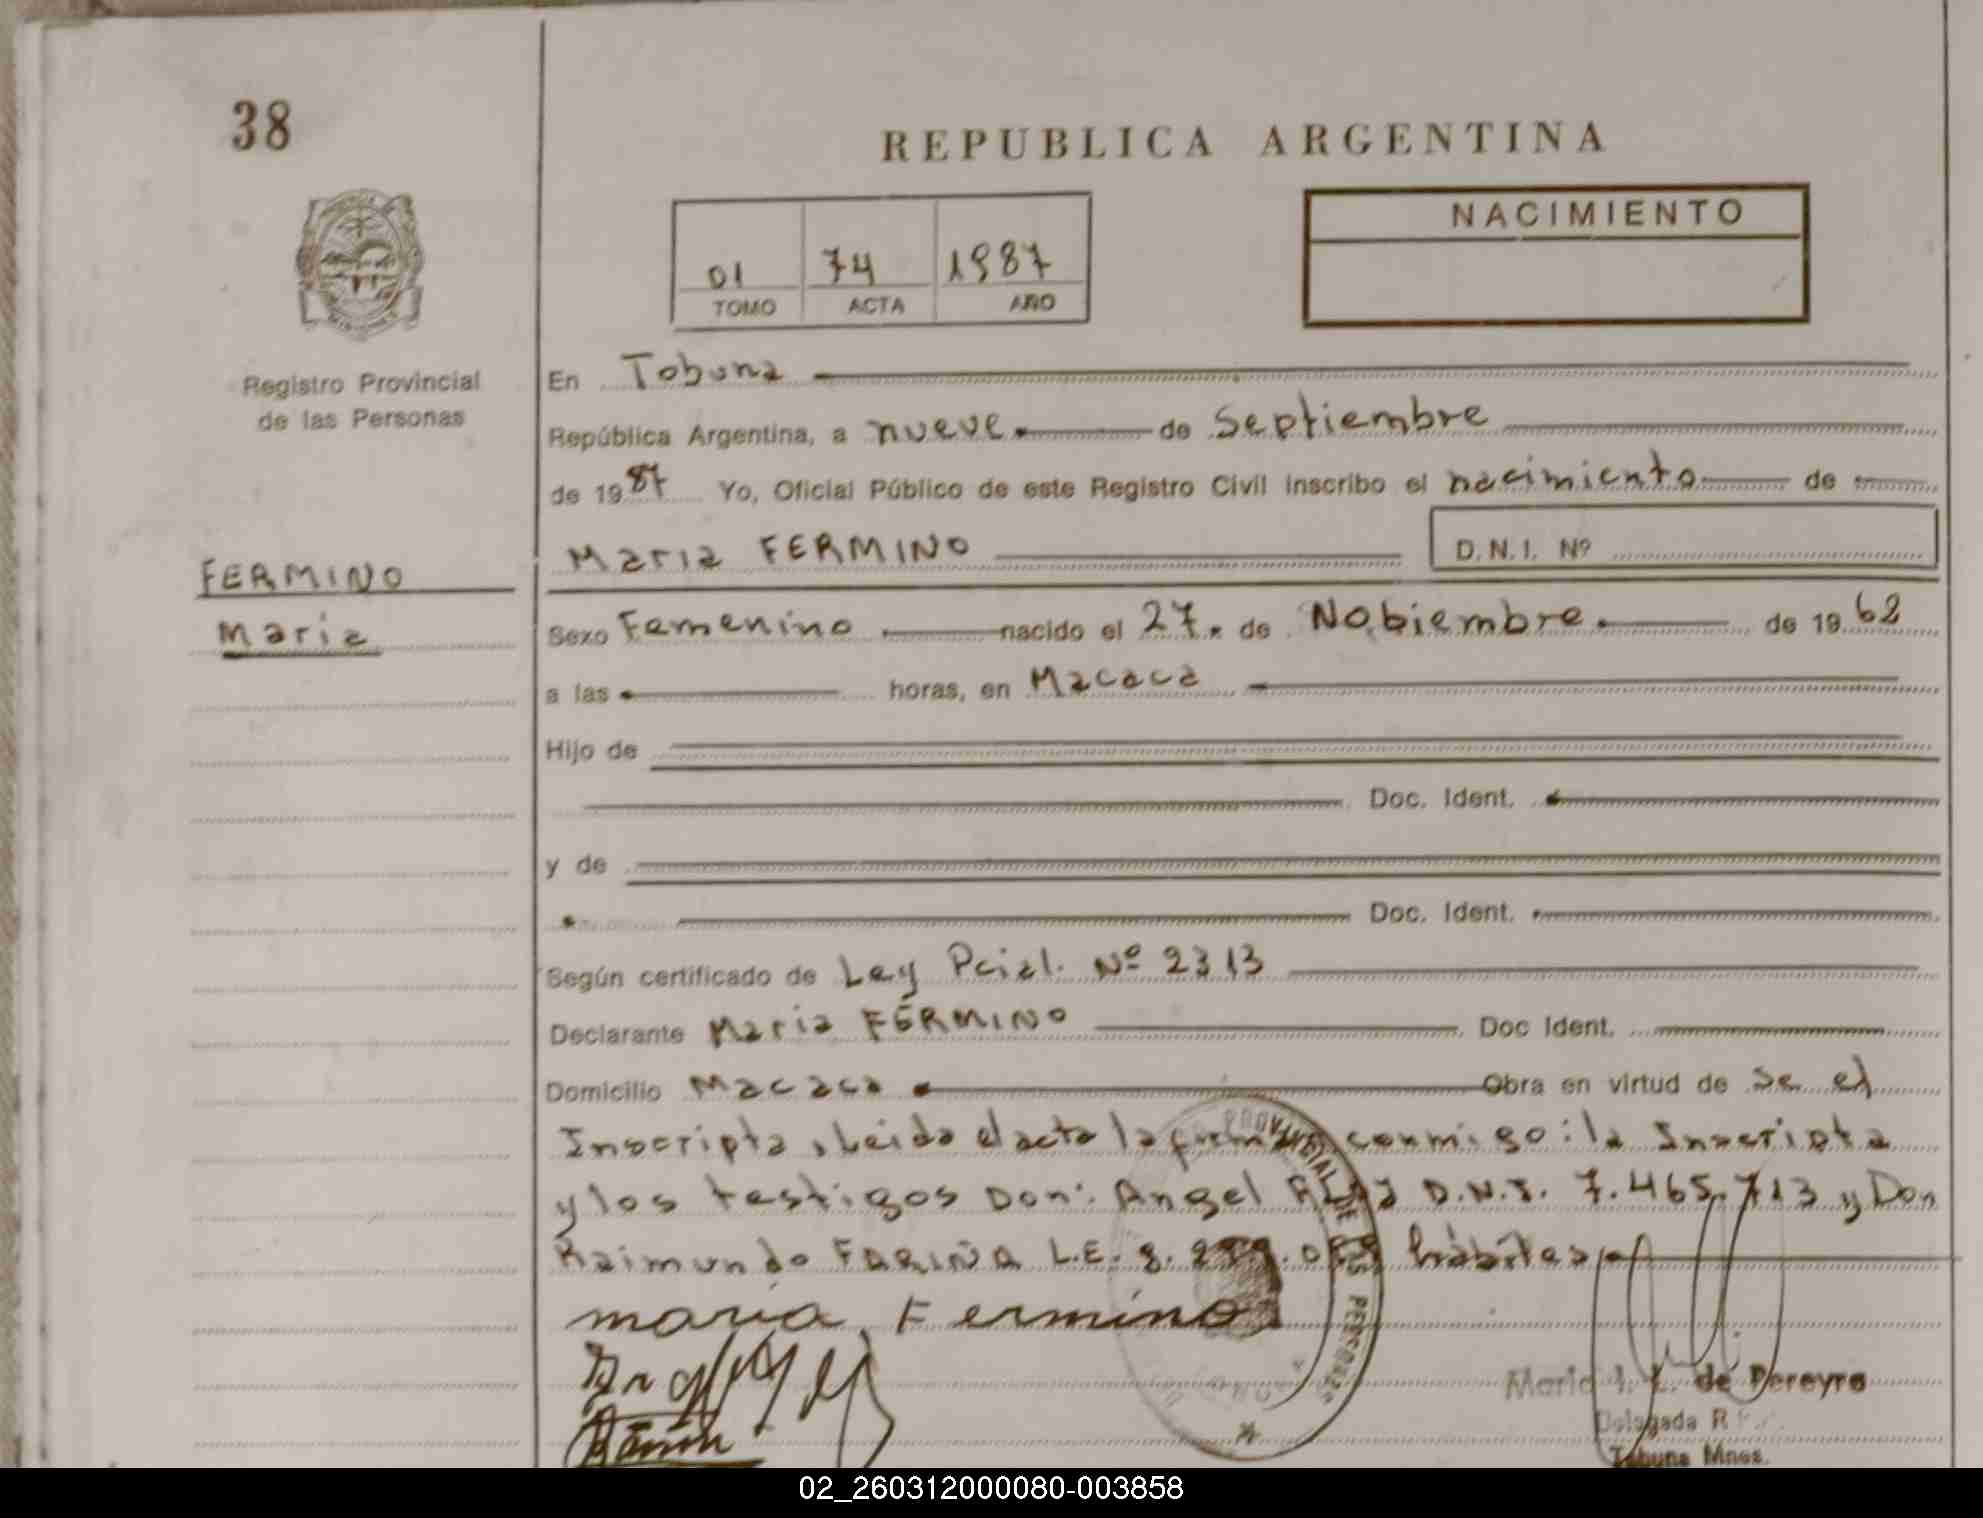 38
REPUBLICA ARGENTINA
NACIMIENTO
01 74 1987
TOMO ACTA AÑO
Registro Provincial
de las Personas
En Tobuna
República Argentina, a nueve de Septiembre
de 19 87 Yo, Oficial Público de este Registro Civil inscribo el nacimiento de
Maria FERMINO D.N.I. Nº
FERMINO
Maria
Sexo Femenino nacido el 27 de Nobiembre de 19 62
a las horas, en Macaca
Hijo de
Doc. Ident.
y de
Doc. Ident.
Según certificado de Ley Pcial. Nº 2313
Declarante Maria FERMINO Doc Ident.
Domicilio Macaca Obra en virtud de Se el
Inscripta, Leida el acta la firman conmigo: la Inscripta
y los testigos Don: Angel D.N.I. 7.465.713 y Don
Raimundo FARIÑA L.E. 8. hábiles
maria Fermino
PROVINCIAL DE LAS PERSONAS
Ramón
Maria I. L. de Pereyra
Delegada R
Tobuna Mnes.
02_260312000080-003858